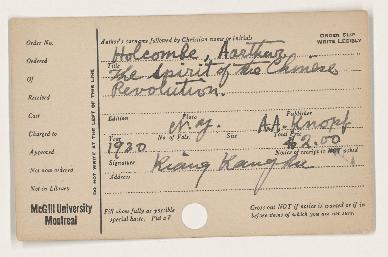 Order No.
Author's surname followed by Christian name or initials
ORDER SLIP
WRITE LEGIBLY
Holcombe, Aarthur
Ordered
Title
The Spirit of the Chinese
Of
Revolution.
Received
DO NOT WRITE AT THE LEFT OF THIS LINE
Cost
Edition
Place
Publisher
N.Y.
A.A. Knopf
Charged to
Year
No. of Vols.
Size
Total Price
1930
$2.00
Approved
Notice of receipt is NOT asked
Signature
Kiang Kang-hu
Not now ordered
Address
Not in Library
McGill University
Montreal
Fill slip as fully as possible
Cross out NOT if notice is wanted or if in
before items of which you are not sure.